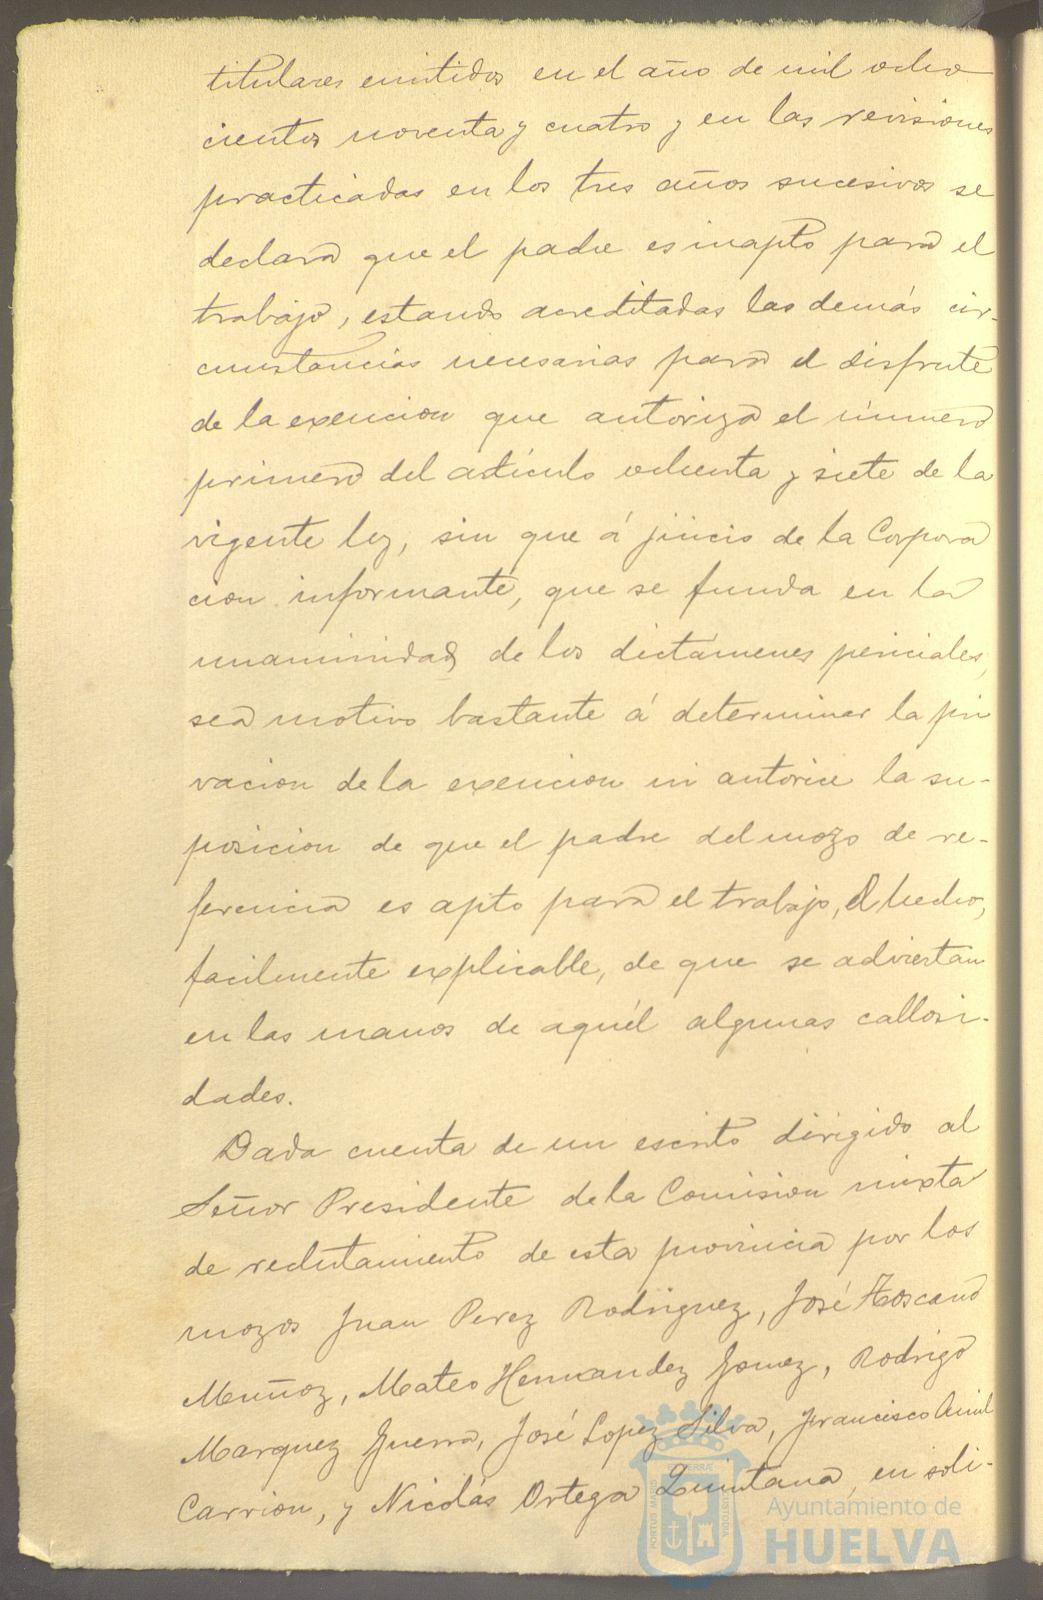 titulares emitidos en el año de mil ocho
cientos noventa y cuatro y en las revisiones
practicadas en los tres años sucesivos se
declara que el padre es inapto para el
trabajo, estando acreditadas las demás cir-
cunstancias necesarias para el disfrute
de la exencion que autoriza el número
primero del artículo ochenta y siete de la
vigente ley, sin que á juicio de la Corpora
cion informante, que se funda en la
unanimidad de los dictámenes periciales,
sea motivo bastante á determinar la pri
vacion de la exencion ni autorice la su-
posicion de que el padre del mozo de re-
ferencia es apto para el trabajo, el hecho,
facilmente explicable, de que se adviertan
en las manos de aquél algunas callosi-
dades.
Dada cuenta de un escrito dirigido al
Señor Presidente de la Comision mixta
de reclutamiento de esta provincia por los
mozos Juan Perez Rodriguez, José Toscano
Muñoz, Mateo Hernandez Gomez, Rodrigo
Marquez Guerra, José Lopez Silva, Francisco
Carrion, y Nicolás Ortega Quintana, en soli-
Ayuntamiento de
HUELVA
PORTUS MARIS
ET TERRÆ
CUSTODIA